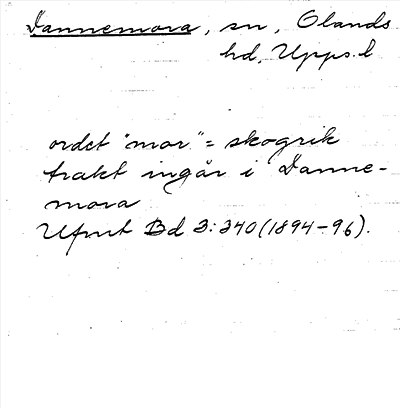 Dannemora, sn, Olands
hd, Upps. l
ordet "mor" = skogrik
trakt ingår i Danne-
mora
Ufmt Bd 3:240 (1894-96).